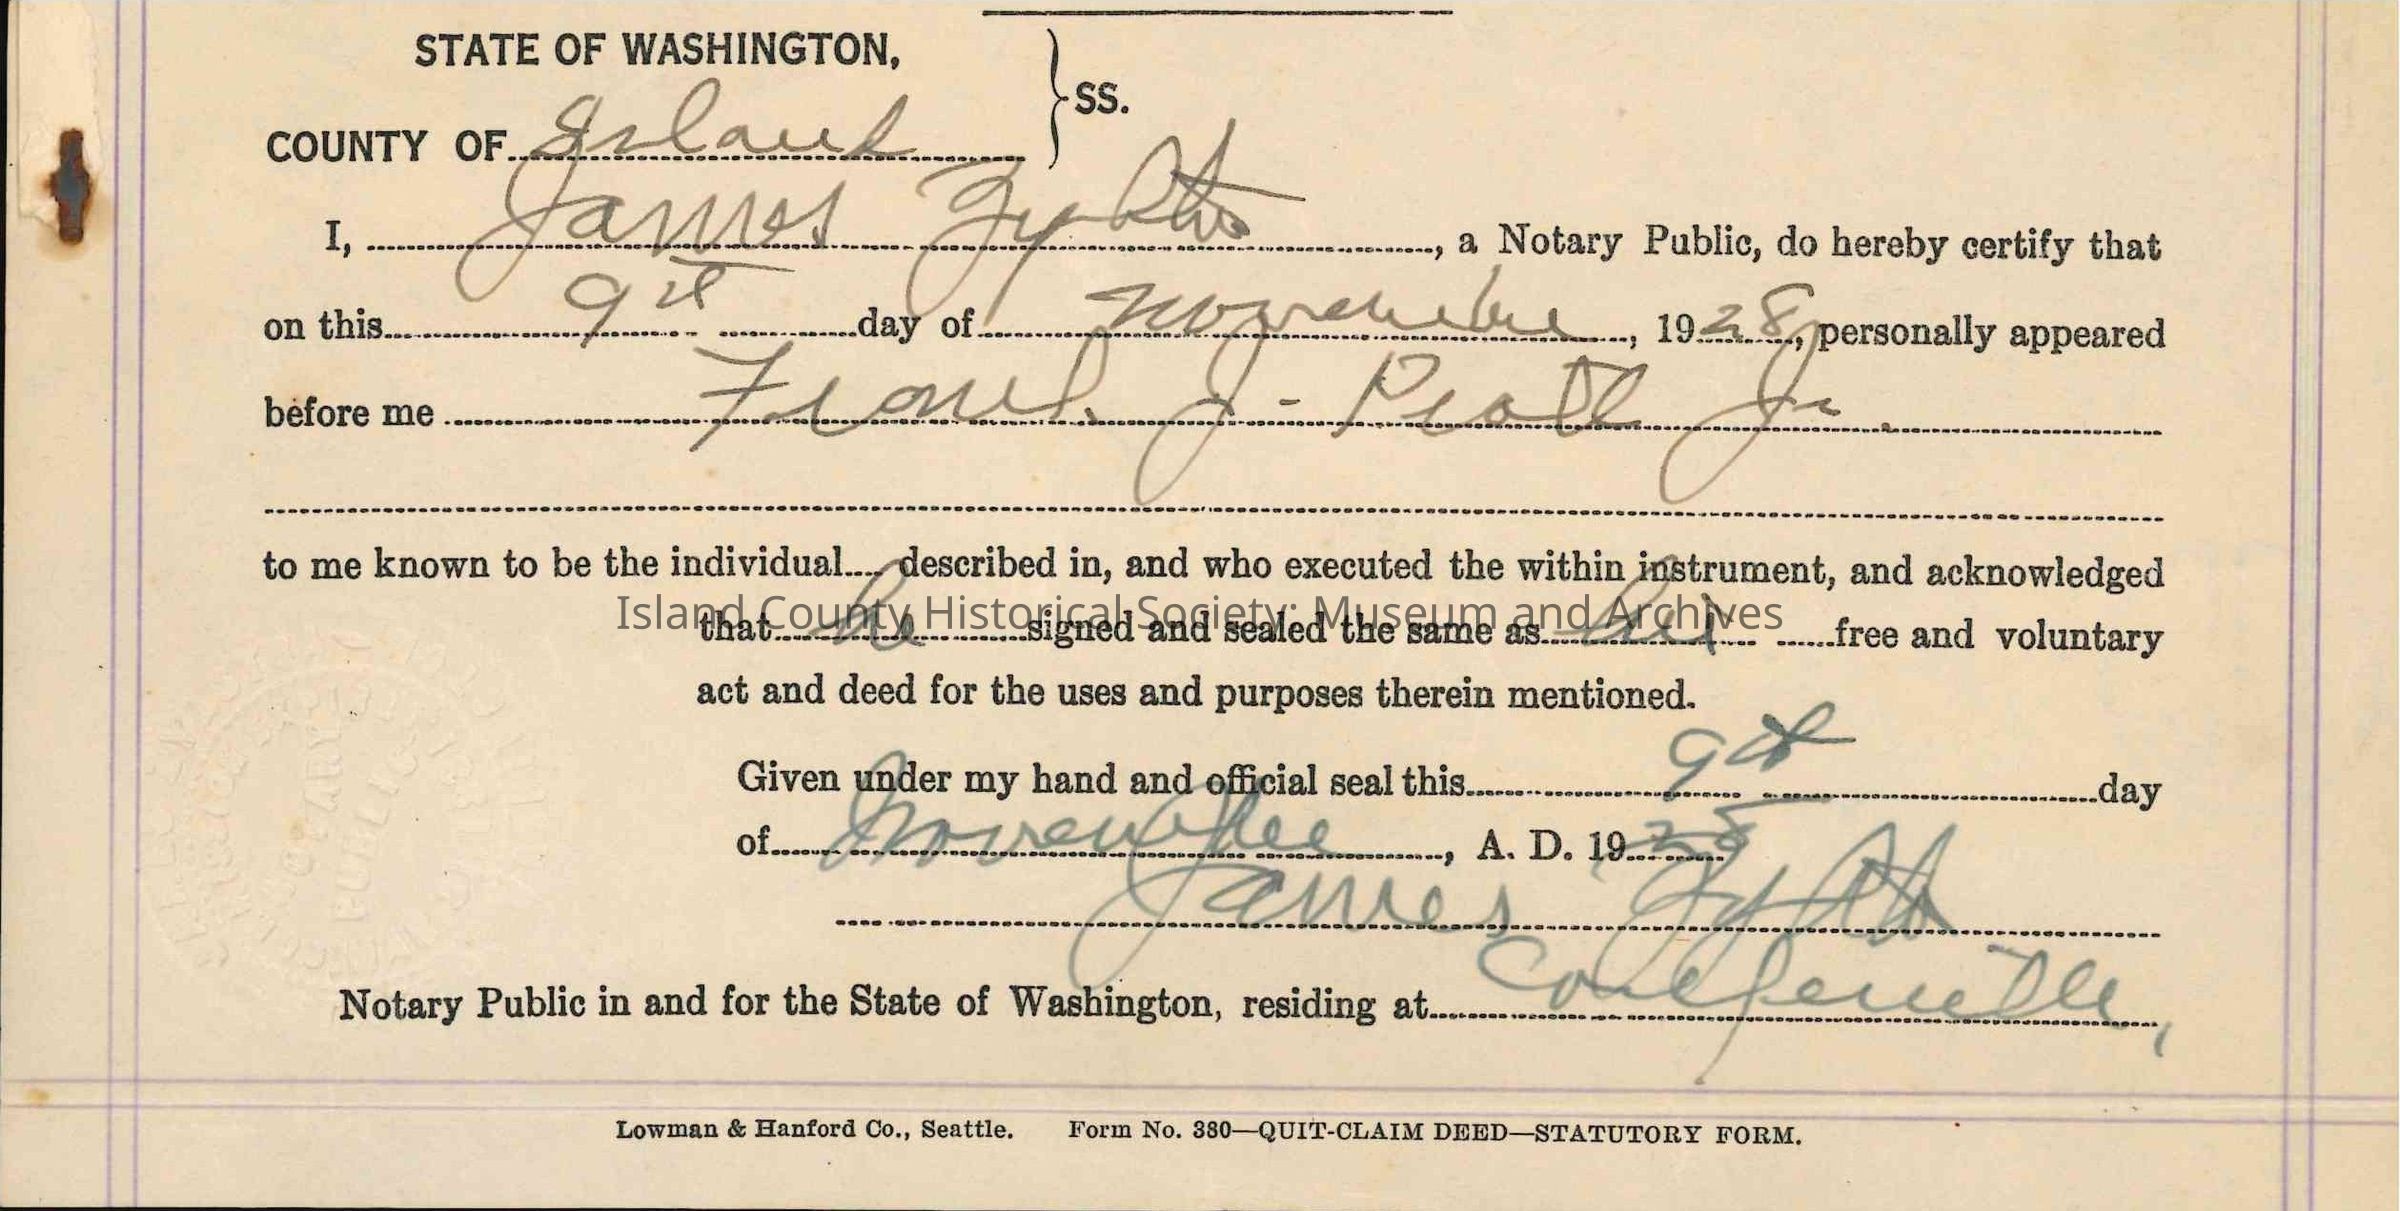 STATE OF WASHINGTON,
SS.
COUNTY OF Island
I, James Zylstra, a Notary Public, do hereby certify that
on this 9th day of November, 1928, personally appeared
before me Frank J. Pratt Jr.
to me known to be the individual described in, and who executed the within instrument, and acknowledged
Island County Historical Society: Museum and Archives
that he signed and sealed the same as his free and voluntary
act and deed for the uses and purposes therein mentioned.
Given under my hand and official seal this 9th day
of November, A. D. 1928
James Zylstra
Notary Public in and for the State of Washington, residing at Coupeville,
NOTARY
PUBLIC
Lowman & Hanford Co., Seattle. Form No. 380—QUIT-CLAIM DEED—STATUTORY FORM.